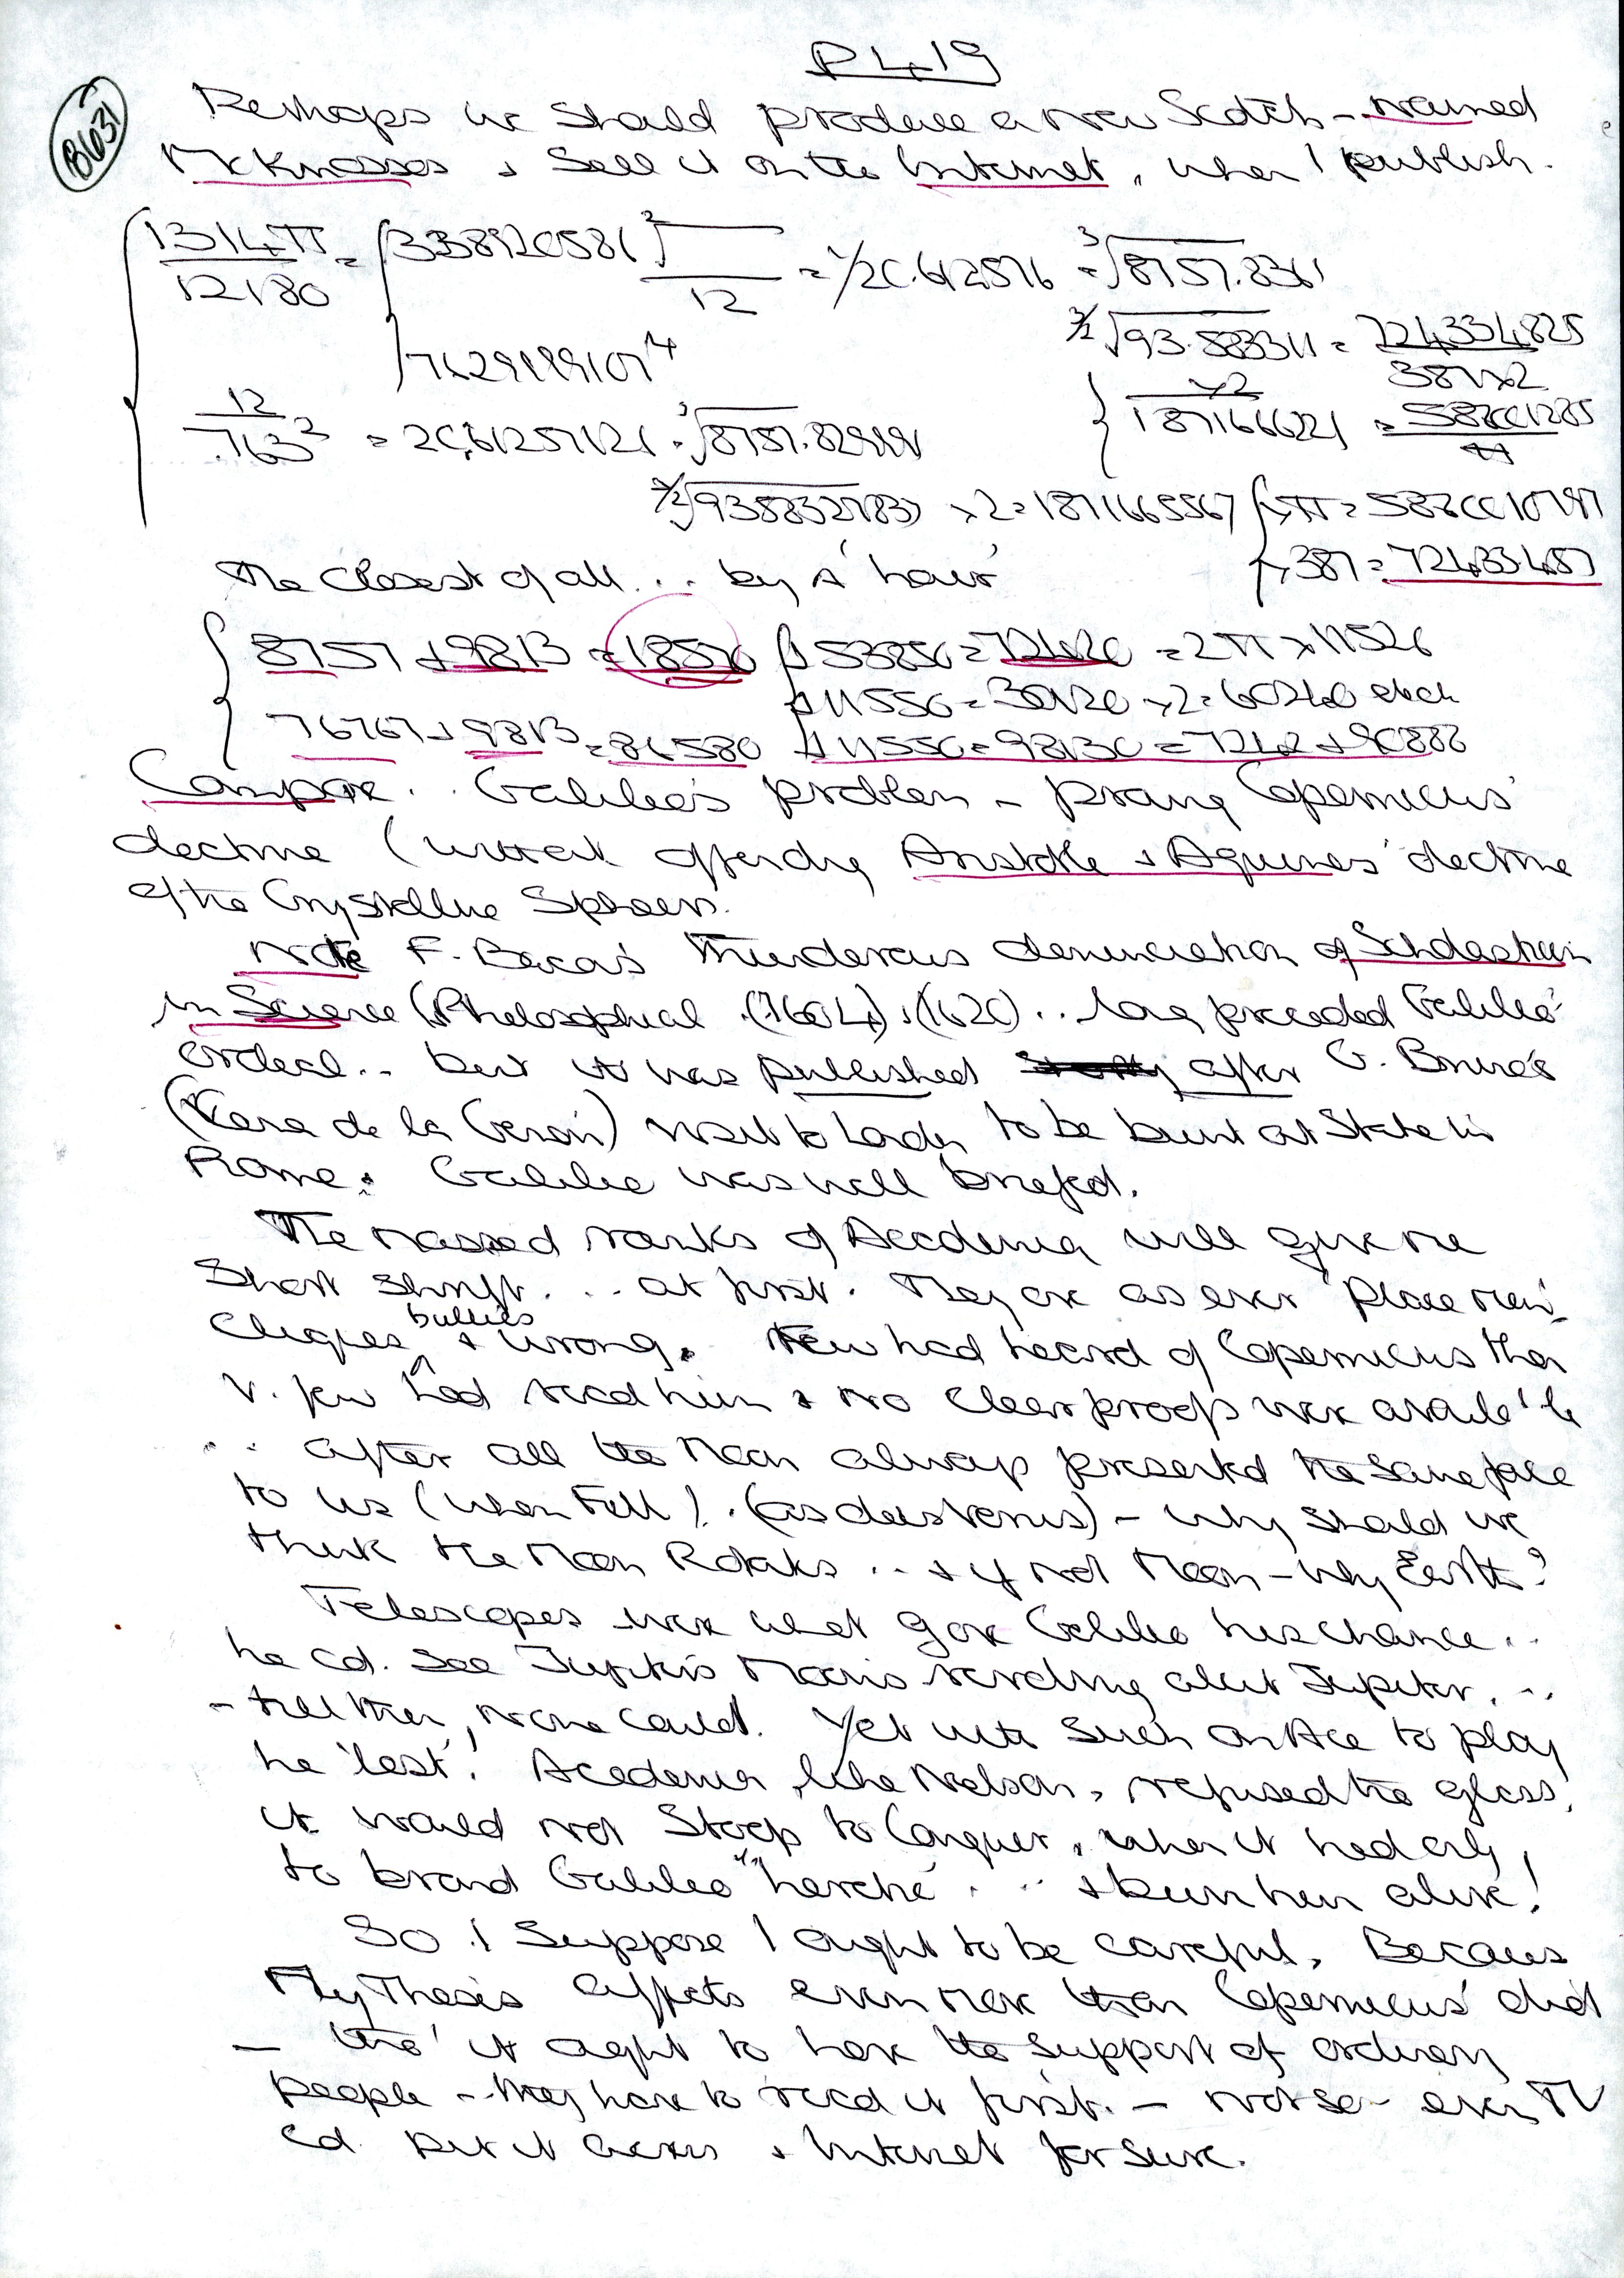 P419
B631
Perhaps we should produce a new Scotch - named
McKnossos & Sell it on the Internet, when I publish.
1314π / 12180 = 338920581 ³√ / 12 = 1/20.612576 = ³√8757.8361
7629199107⁴
³/²√93.583311 = 724334825 / 387x2
x2 / 187166621 = 588001285 / π
12 / .763² = 20.61257121 = ³√8757.82999
³/²√9358327835 x2 = 1871665567 xπ = 5880010797
x387 = 72433457
The Closest of all... by a 'hair'
8757 + 9813 = 18570 + 53850 = 72420 = 2π x 11526
+ 11550 = 30120 x2 = 60240 each
76767 + 9813 = 86580 + 11550 = 98130 = 7242 + 90888
Compare.. Galileo's problem - proving Copernicus'
doctrine (without offending Aristotle & Aquinas' doctrine
of the Crystalline Spheres.
Note F. Bacon's Thunderous denunciation of Scholasticism
in Science (Philosophical (1604), (1620).. long preceded Galileo's
ordeal.. but it was published after G. Bruno's
visit to London to be burnt at Stake in
Rome. Galileo was well briefed.
The massed ranks of Academia will give me
Short shrift... at first. They are as ever 'place men',
Cliques bullies & wrong. Few had heard of Copernicus then
v. few had read him & no clear proofs were available
.. after all the Moon always presented the same face
to us (when Full). (as does Venus) - why should we
think the Moon Rotates .. & if not Moon - why Earth?
Telescopes were what gave Galileo his chance..
he cd. see Jupiter's Moons revolving about Jupiter...
- till then, none could. Yet with such an Ace to play
he 'lost'! Academia, like Nelson, refused the glass,
it would not Stoop to Conquer, when it had only
to brand Galileo "heretic" ... & burn him alive!
So I Suppose I ought to be careful. Because
My Thesis affects even more than Copernicus' did
- tho' it ought to have the support of ordinary
people - they have to read it first. - not so - even TV
cd. put it across & Internet for sure.